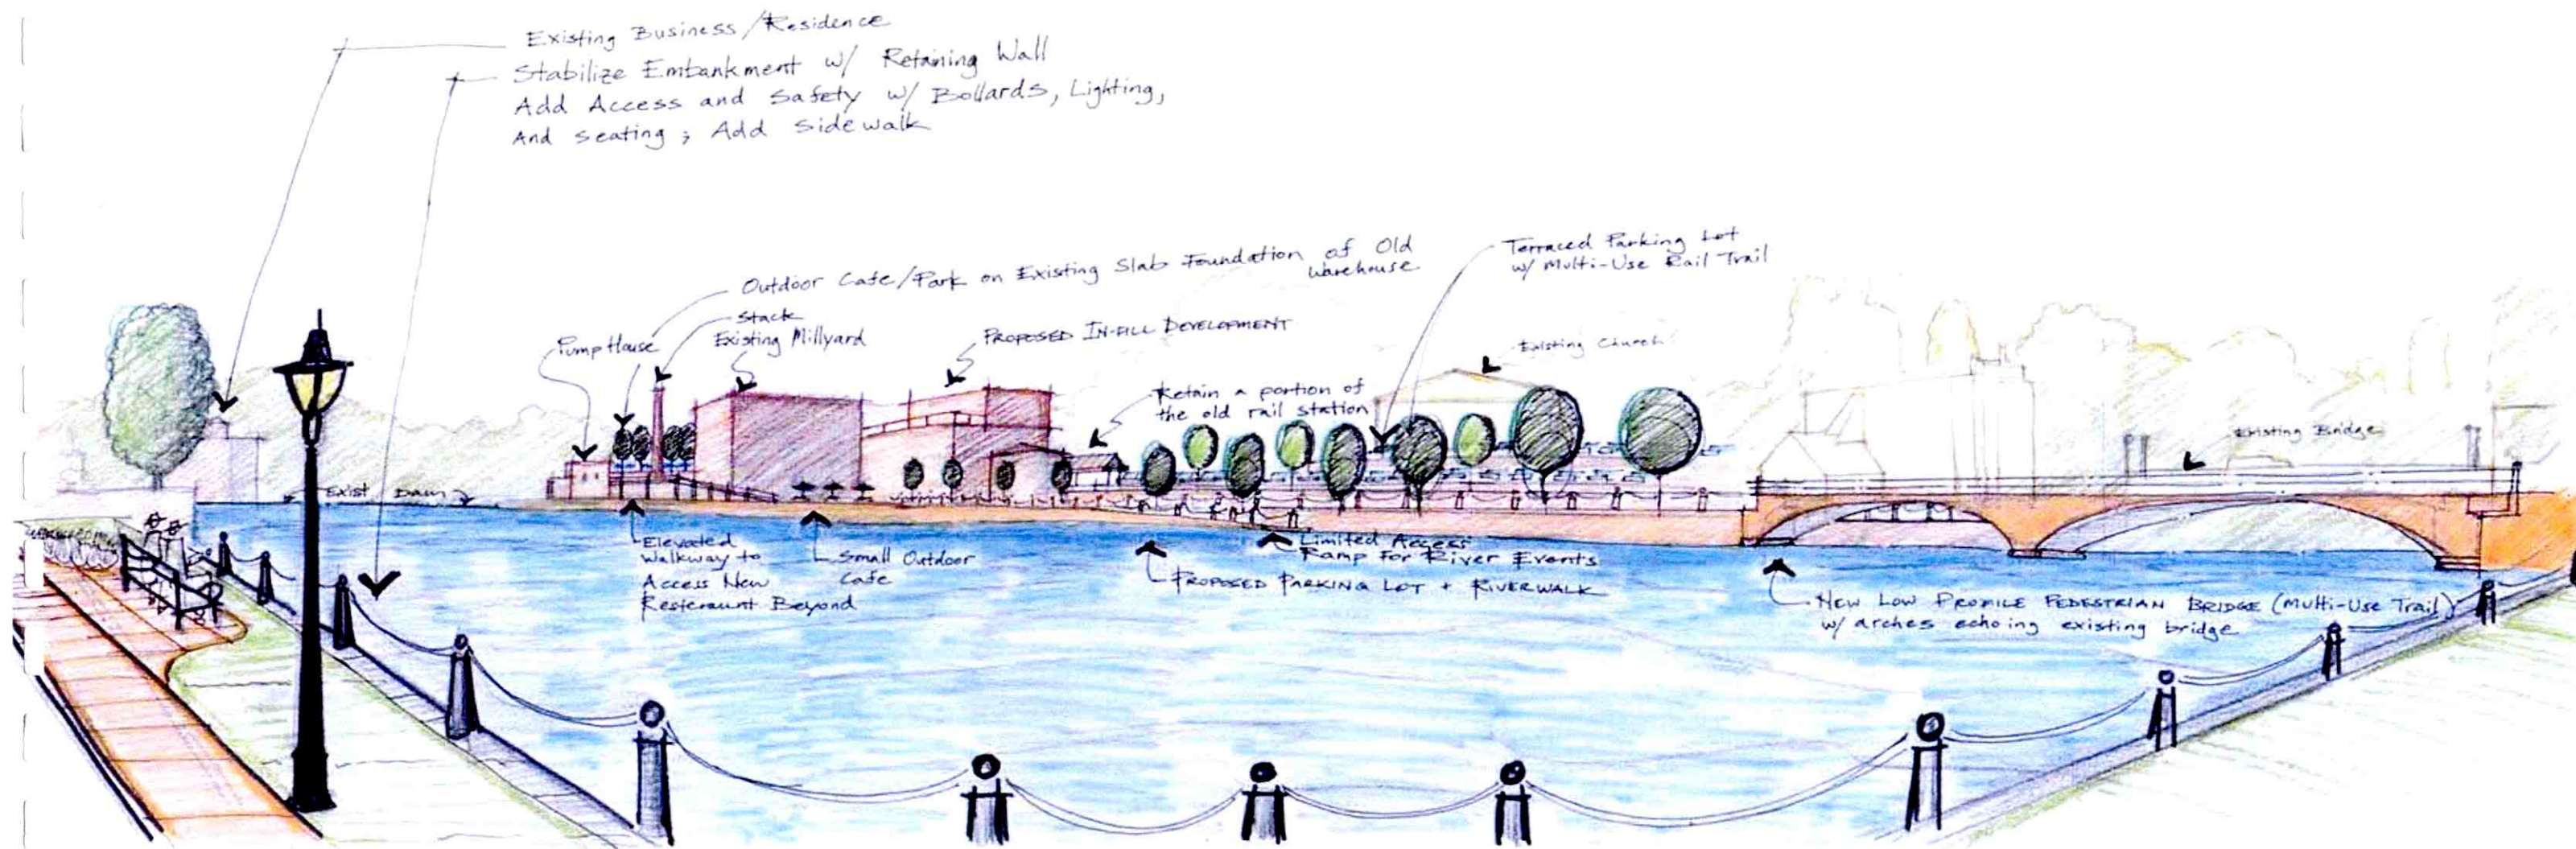 Existing Business/Residence
Stabilize Embankment w/ Retaining Wall
Add Access and Safety w/ Bollards, Lighting,
And seating; Add sidewalk
Outdoor Cafe/Park on Existing Slab Foundation of Old
Warehouse
Terraced Parking Lot
w/ Multi-Use Rail Trail
Stack
Pump House
Existing Millyard
PROPOSED IN-FILL DEVELOPMENT
Existing Church
Retain a portion of
the old rail station
Existing Bridge
Exist Dam
Elevated
Walkway to
Access New
Resteraunt Beyond
Small Outdoor
Cafe
Limited Access
Ramp For River Events
PROPOSED PARKING LOT + RIVERWALK
NEW LOW PROFILE PEDESTRIAN BRIDGE (Multi-Use Trail)
w/ arches echoing existing bridge